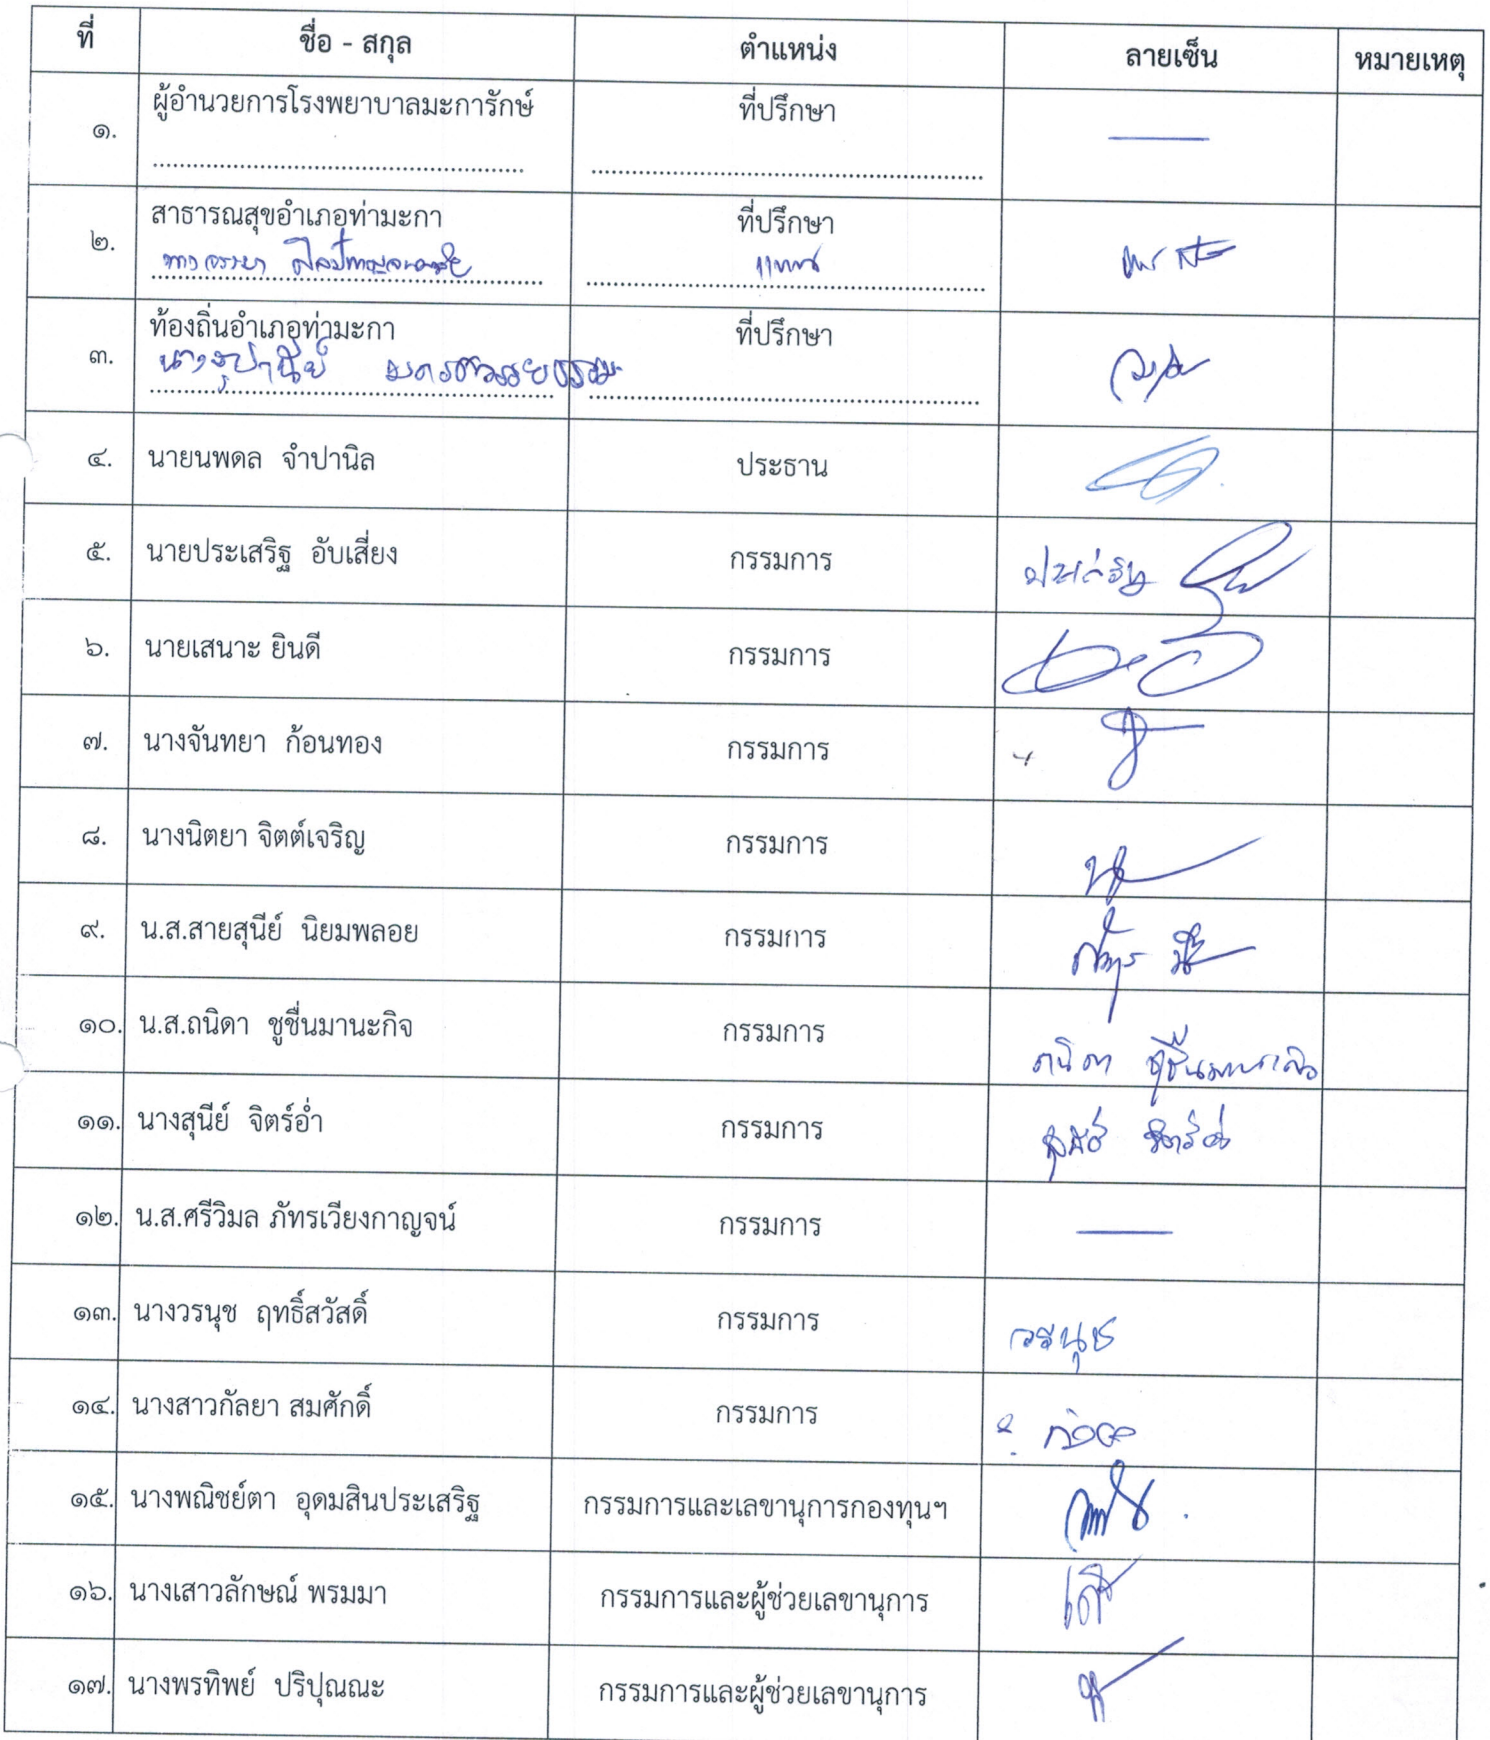 ที่ ชื่อ - สกุล ตำแหน่ง ลายเซ็น หมายเหตุ
ผู้อำนวยการโรงพยาบาลมะการักษ์ ที่ปรึกษา
๑.
สาธารณสุขอำเภอท่ามะกา ที่ปรึกษา
๒. แทน
ท้องถิ่นอำเภอท่ามะกา ที่ปรึกษา
๓.
๔. นายนพดล จำปานิล ประธาน
๕. นายประเสริฐ อับเสี่ยง กรรมการ ประเสริฐ
๖. นายเสนาะ ยินดี กรรมการ
๗. นางจันทยา ก้อนทอง กรรมการ
๘. นางนิตยา จิตต์เจริญ กรรมการ
๙. น.ส.สายสุนีย์ นิยมพลอย กรรมการ
๑๐. น.ส.ถนิดา ชูชื่นมานะกิจ กรรมการ ถนิดา ชูชื่นมานะกิจ
๑๑. นางสุนีย์ จิตร์อ่ำ กรรมการ สุนีย์ จิตร์อ่ำ
๑๒. น.ส.ศรีวิมล ภัทรเวียงกาญจน์ กรรมการ
๑๓. นางวรนุช ฤทธิ์สวัสดิ์ กรรมการ วรนุช
๑๔. นางสาวกัลยา สมศักดิ์ กรรมการ
๑๕. นางพณิชย์ตา อุดมสินประเสริฐ กรรมการและเลขานุการกองทุนฯ
๑๖. นางเสาวลักษณ์ พรมมา กรรมการและผู้ช่วยเลขานุการ
๑๗. นางพรทิพย์ ปริปุณณะ กรรมการและผู้ช่วยเลขานุการ